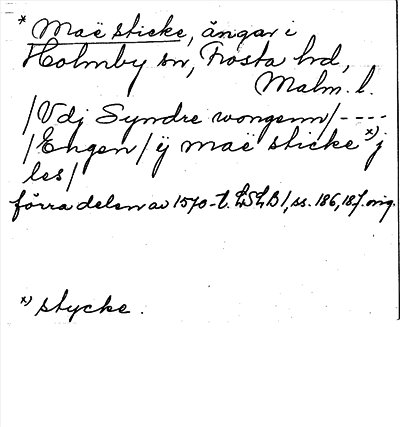 * Maë sticke, ängar i
Holmby sn, Frosta hd,
Malm. l.
/Vdj Syndre wongenn/----
/Engen/ ÿ maë sticke *) j
les/
förra delen av 1570-t. LSLB 1, ss. 186, 187. orig.
*) stycke.